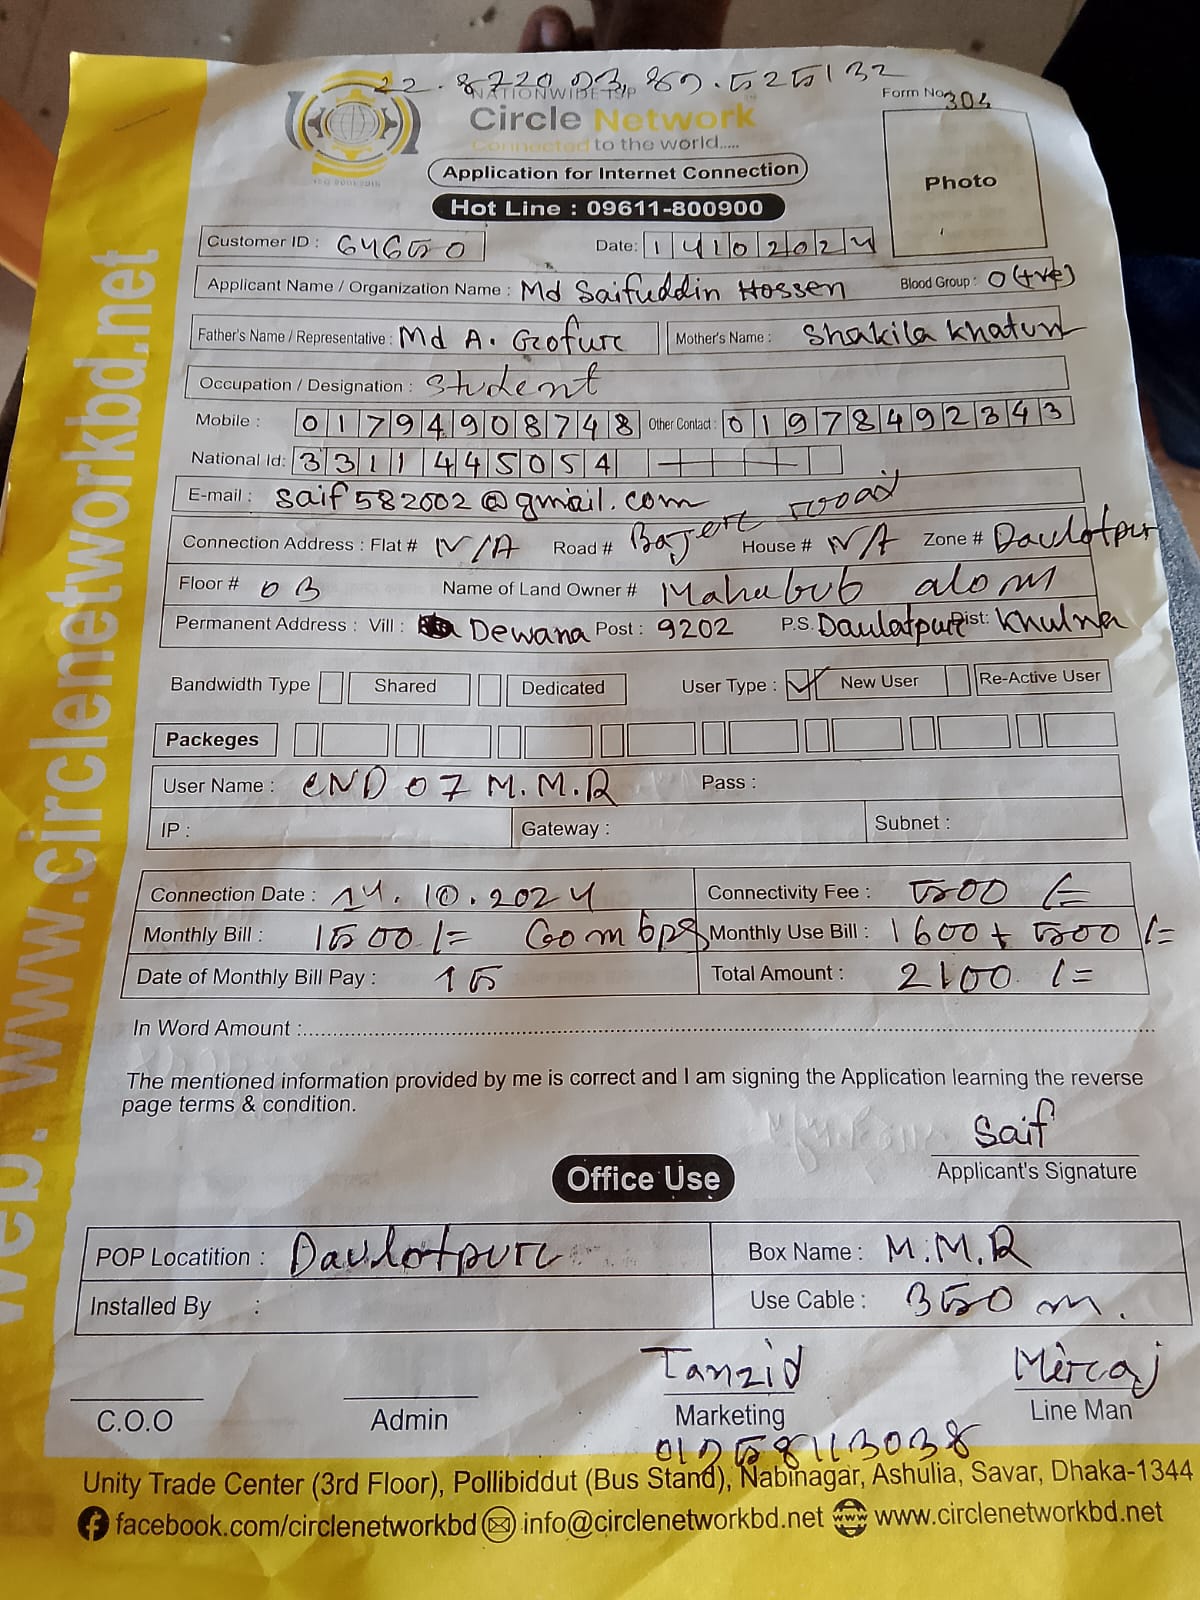 22.872093, 89.525132
NATIONWIDE ISP
Form No 304
Circle Network
Connected to the world.....
Application for Internet Connection
Photo
Hot Line : 09611-800900
Customer ID : 64650 Date: 14102024
Applicant Name / Organization Name : Md Saifuddin Hossen Blood Group : O(+ve)
Father's Name / Representative : Md A. Gofur Mother's Name : Shakila Khatun
Occupation / Designation : Student
Mobile : 01794908748 Other Contact : 01978492343
National Id: 3311445054
E-mail : saif582002@gmail.com
Connection Address : Flat # N/A Road # road House # N/A Zone # Daulotpur
Floor # 03 Name of Land Owner # Mahabub alom
Permanent Address : Vill : Dewana Post : 9202 P.S. Daulatpur Dist: Khulna
Bandwidth Type Shared Dedicated User Type : New User Re-Active User
Packeges
User Name : CND 07 M.M.R Pass :
IP : Gateway : Subnet :
Connection Date : 14.10.2024 Connectivity Fee : 500 /=
Monthly Bill : 1500 /= 60 mbps Monthly Use Bill : 1600 + 500 /=
Date of Monthly Bill Pay : 15 Total Amount : 2100 /=
In Word Amount :
The mentioned information provided by me is correct and I am signing the Application learning the reverse
page terms & condition.
Saif
Applicant's Signature
Office Use
POP Locatition : Daulotpur Box Name : M.M.R
Installed By : Use Cable : 350 m.
Tanzid Miraj
C.O.O Admin Marketing Line Man
Unity Trade Center (3rd Floor), Pollibiddut (Bus Stand), Nabinagar, Ashulia, Savar, Dhaka-1344
facebook.com/circlenetworkbd info@circlenetworkbd.net www.circlenetworkbd.net
Web: www.circlenetworkbd.net